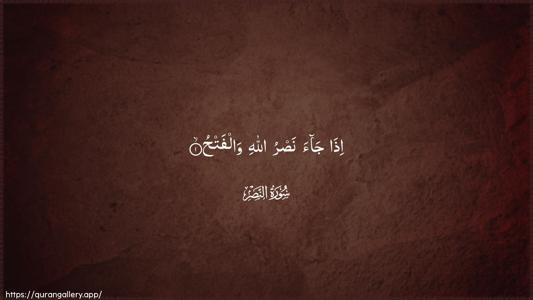 اِذَا جَآءَ نَصْرُ اللّٰهِ وَالْفَتْحُۙ ۝١
سُوْرَةُ النَّصْرِ
https://qurangallery.app/